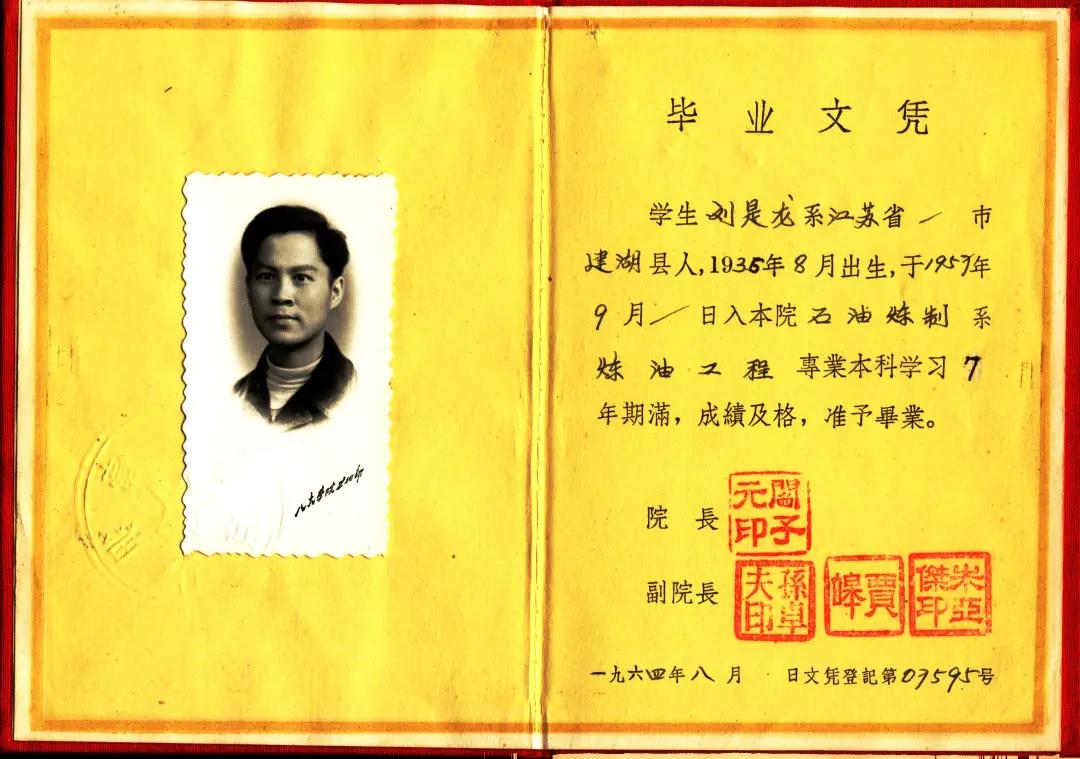 毕业文凭
学生刘是龙系江苏省一市
建湖县人,1935年8月出生,于1957年
9月/日入本院石油炼制系
炼油工程專業本科学习7
年期滿,成績及格,准予畢業。
院長 閻子元印
副院長 孫卓夫印 賈皞 朱亞傑印
一九六四年八月 日文凭登記第03595号